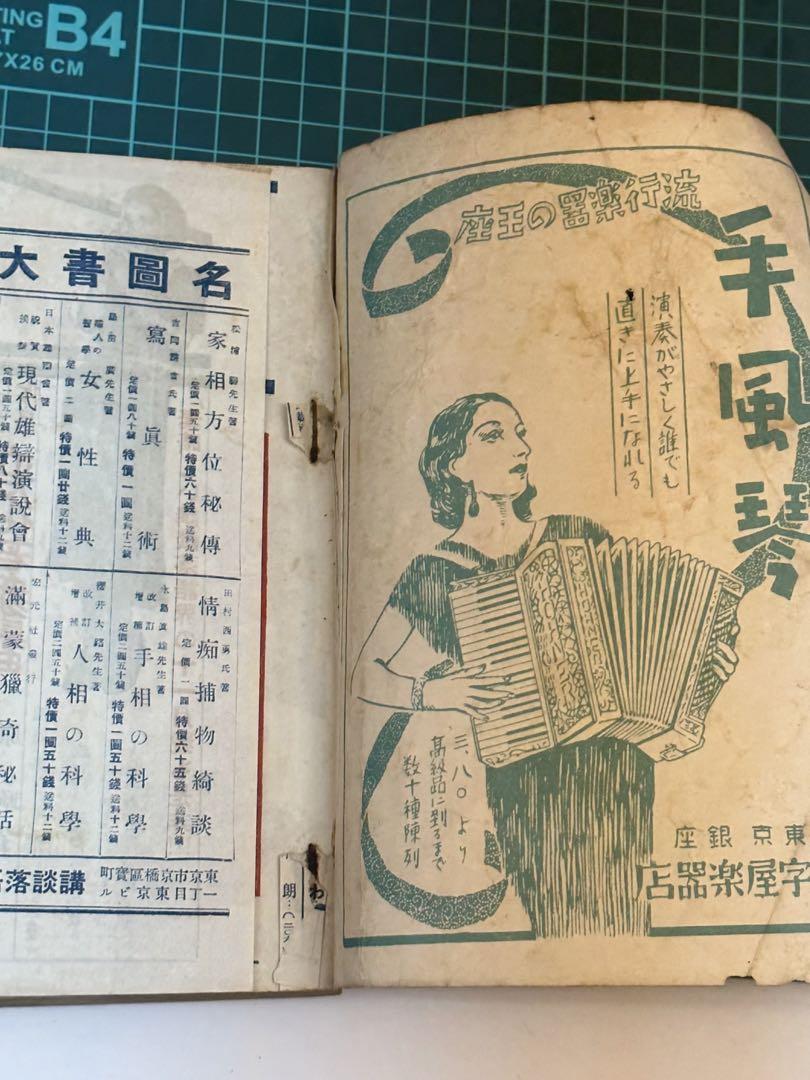 TING B4
AT
7X26 CM
流行楽器の王座
手風琴
演奏がやさしく誰でも
直きに上手になれる
三、八〇より
高級品に到るまで
数十種陳列
東京銀座
字屋楽器店
名圖書大
家相方位秘傳
定價一圓五十錢
特價六十錢
送料九錢
寫眞術
定價一圓八十錢
特價一圓
送料十二錢
女性典
定價二圓
特價一圓廿錢
送料十二錢
現代雄辯演說會
田村西男氏著
情痴捕物綺談
特價六十五錢
送料九錢
改訂
增補
手相の科學
定價二圓五十錢
特價一圓五十錢
送料十二錢
櫻井大路先生著
改訂
增補
人相の科學
定價二圓五十錢
特價一圓五十錢
送料十二錢
宏元社發行
滿蒙獵奇秘話
東京市京橋區寶町
一丁目東京ビル
講談落
わ
朗